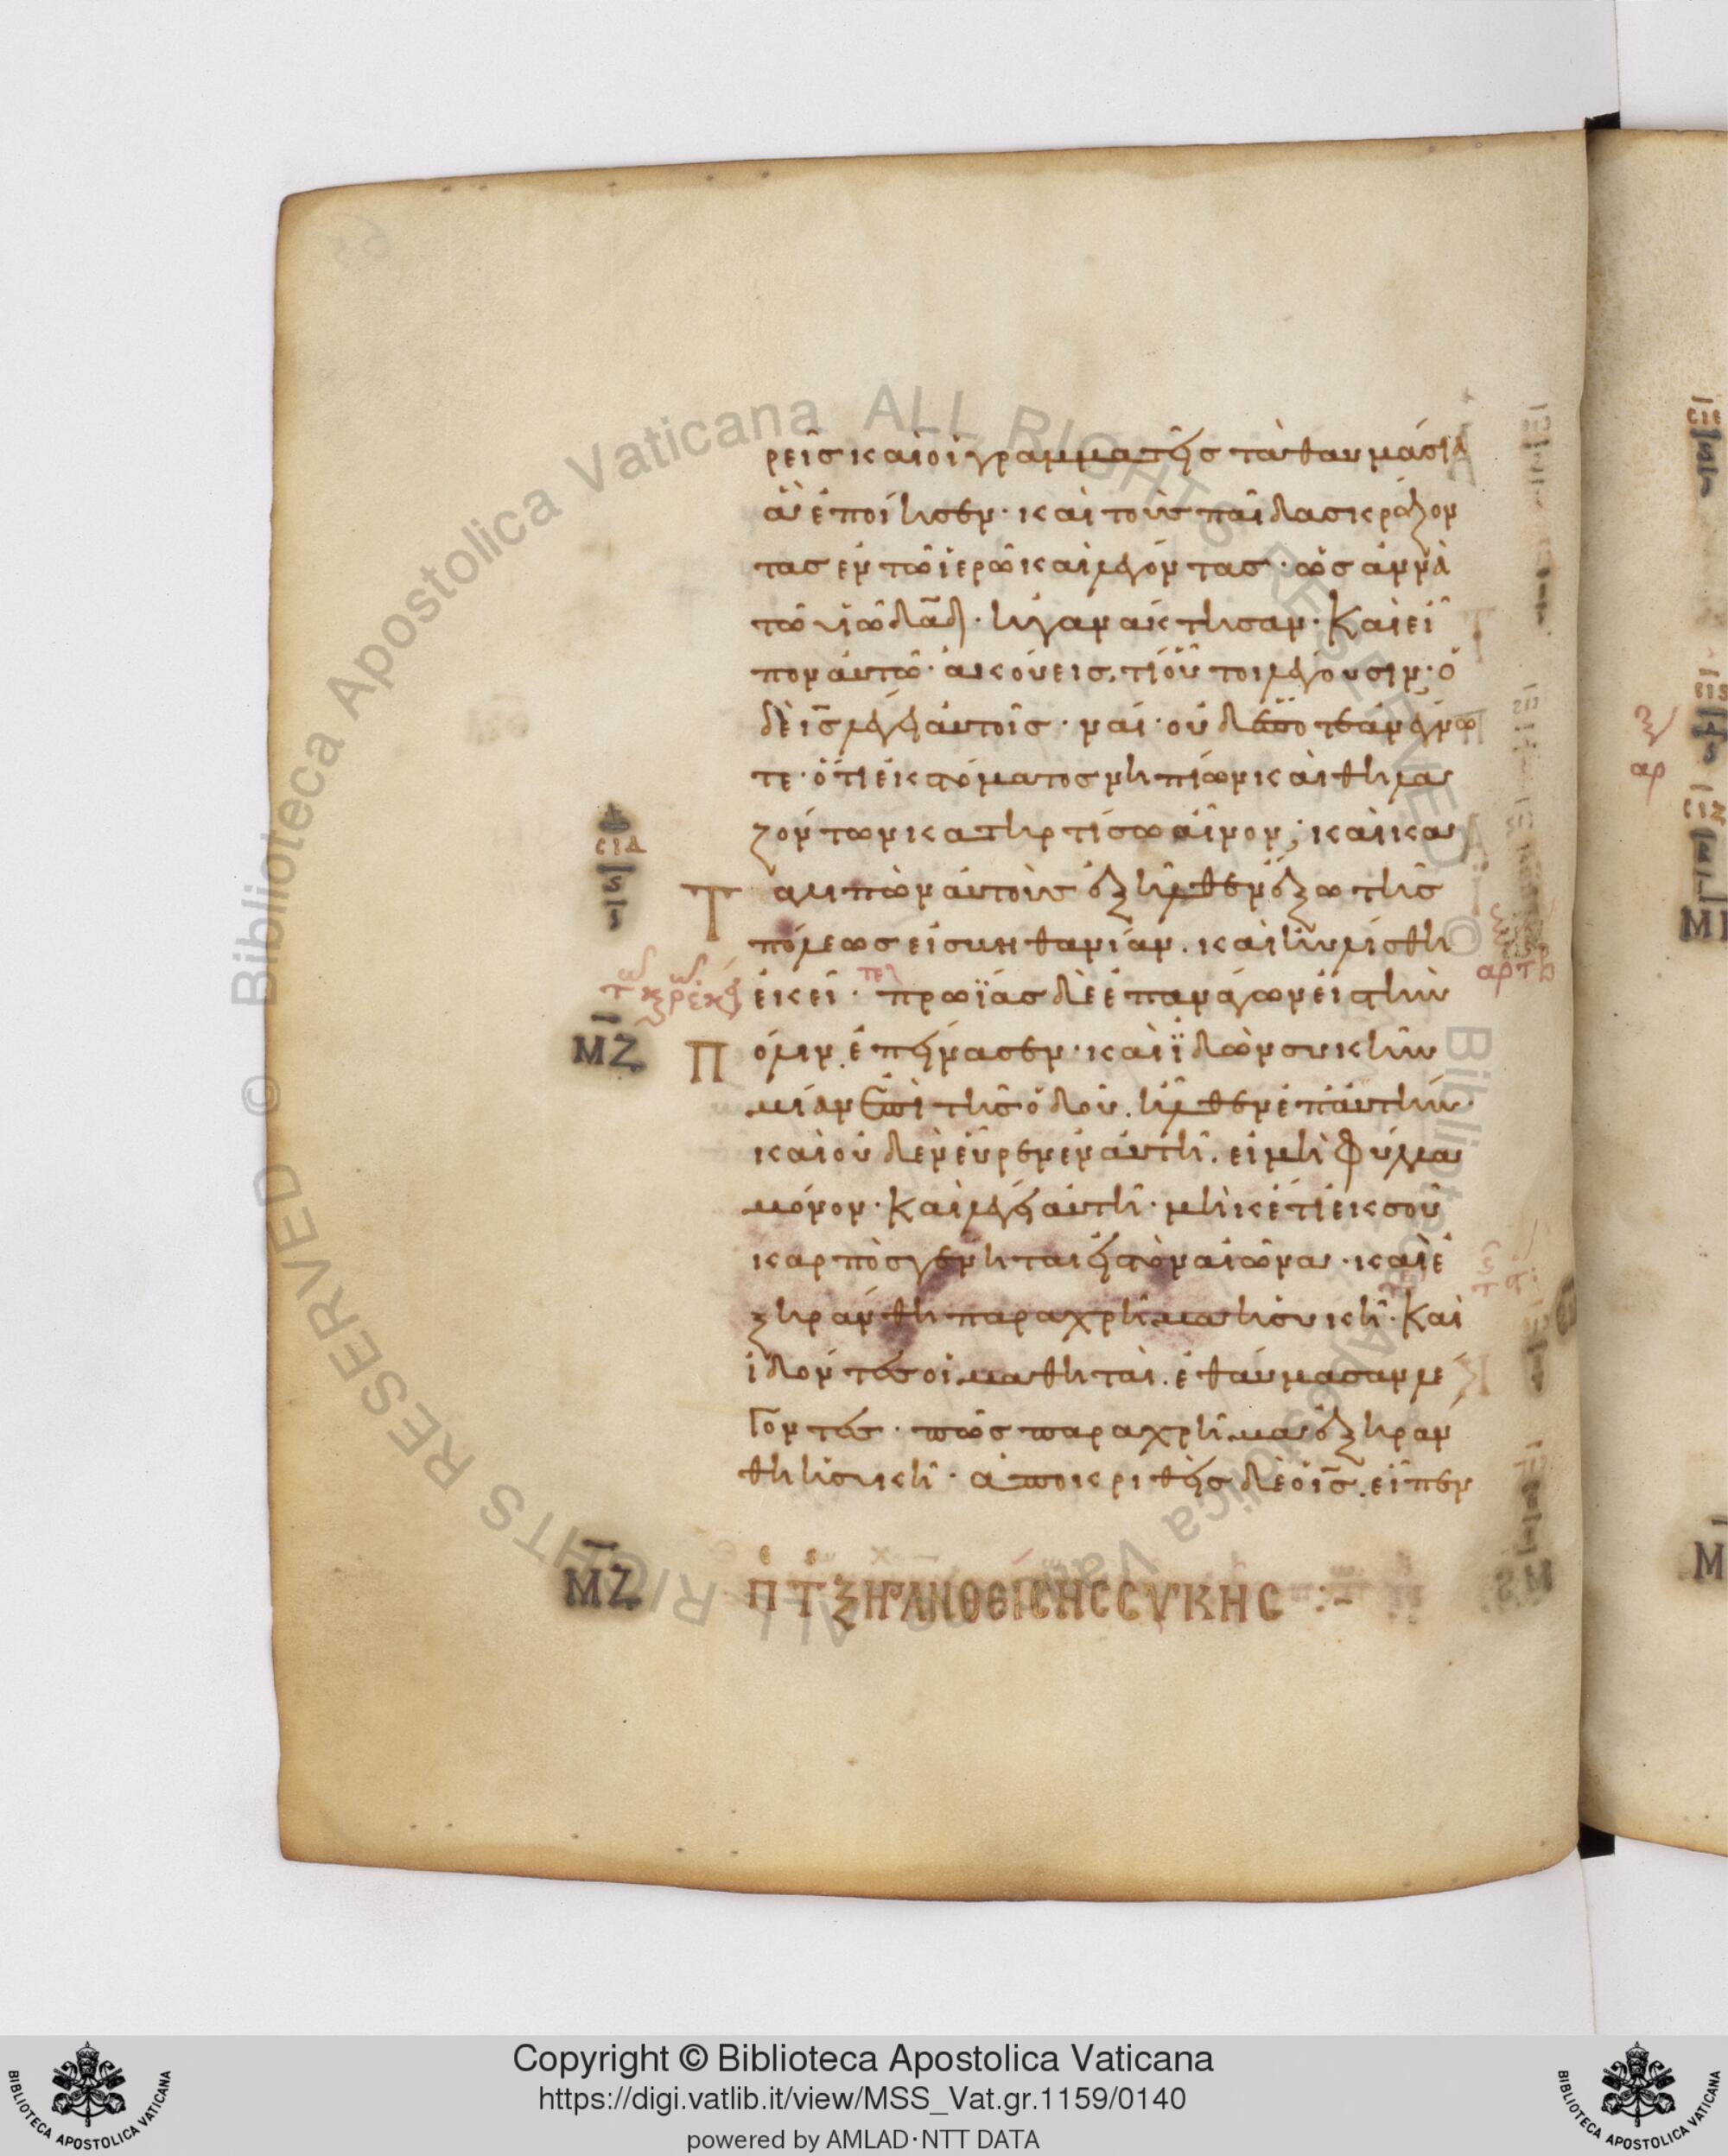 ρεῖς καὶ οἱ γραμματεῖς τὰ θαυμάσια
ἃ ἐποίησεν· καὶ τοὺς παῖδας κράζον
τας ἐν τῶ ἱερῶ καὶ λέγοντας· ὡσαννὰ
τῶ υἱῶ δαδ· ἠγανάκτησαν· Καὶ εἶ
πον αὐτῶ· ἀκούεις, τί οὗτοι λέγουσιν· ὁ
δὲ ις λέγει αὐτοῖς· ναί· οὐδέποτε ἀνέγνω
τε· ὅτι ἐκ στόματος νηπίων καὶ θηλα
ζόντων κατηρτίσω αἶνον; καὶ κα
Τ αλιπὼν αὐτοὺς ἐξῆλθεν ἔξω τῆς
πόλεως εἰς βηθανίαν. καὶ ηὐλίσθη
ἐκεῖ· πρωΐας δὲ ἐπανάγων εἰς τὴν
Π όλιν. ἐπείνασεν· καὶ ἰδὼν συκῆν
μίαν ἐπὶ τῆς ὁδοῦ. ἦλθεν ἐπ' αὐτήν·
καὶ οὐδὲν εὗρεν ἐν αὐτῆ. εἰ μὴ φύλλα
μόνον· Καὶ λέγει αὐτῆ· μηκέτι ἐκ σοῦ
καρπὸς γένηται εἰς τὸν αἰῶνα· καὶ ἐ
ξηράνθη παραχρῆμα ἡ συκῆ· Καὶ
ἰδόντες οἱ μαθηταὶ. ἐθαύμασαν λέ
γοντες· πῶς παραχρῆμα ἐξηράν
θη ἡ συκῆ· ἀποκριθεὶς δὲ ὁ ις. εἶπεν
ΜΖ
ΜΖ Π Τ ΞΗΡΑΝΘΕΙCΗC CΥΚΗC :-
Copyright © Biblioteca Apostolica Vaticana
https://digi.vatlib.it/view/MSS_Vat.gr.1159/0140
powered by AMLAD·NTT DATA
BIBLIOTECA APOSTOLICA VATICANA
BIBLIOTECA APOSTOLICA VATICANA
© Biblioteca Apostolica Vaticana ALL RIGHTS RESERVED
© Biblioteca Apostolica Vaticana ALL RIGHTS RESERVED